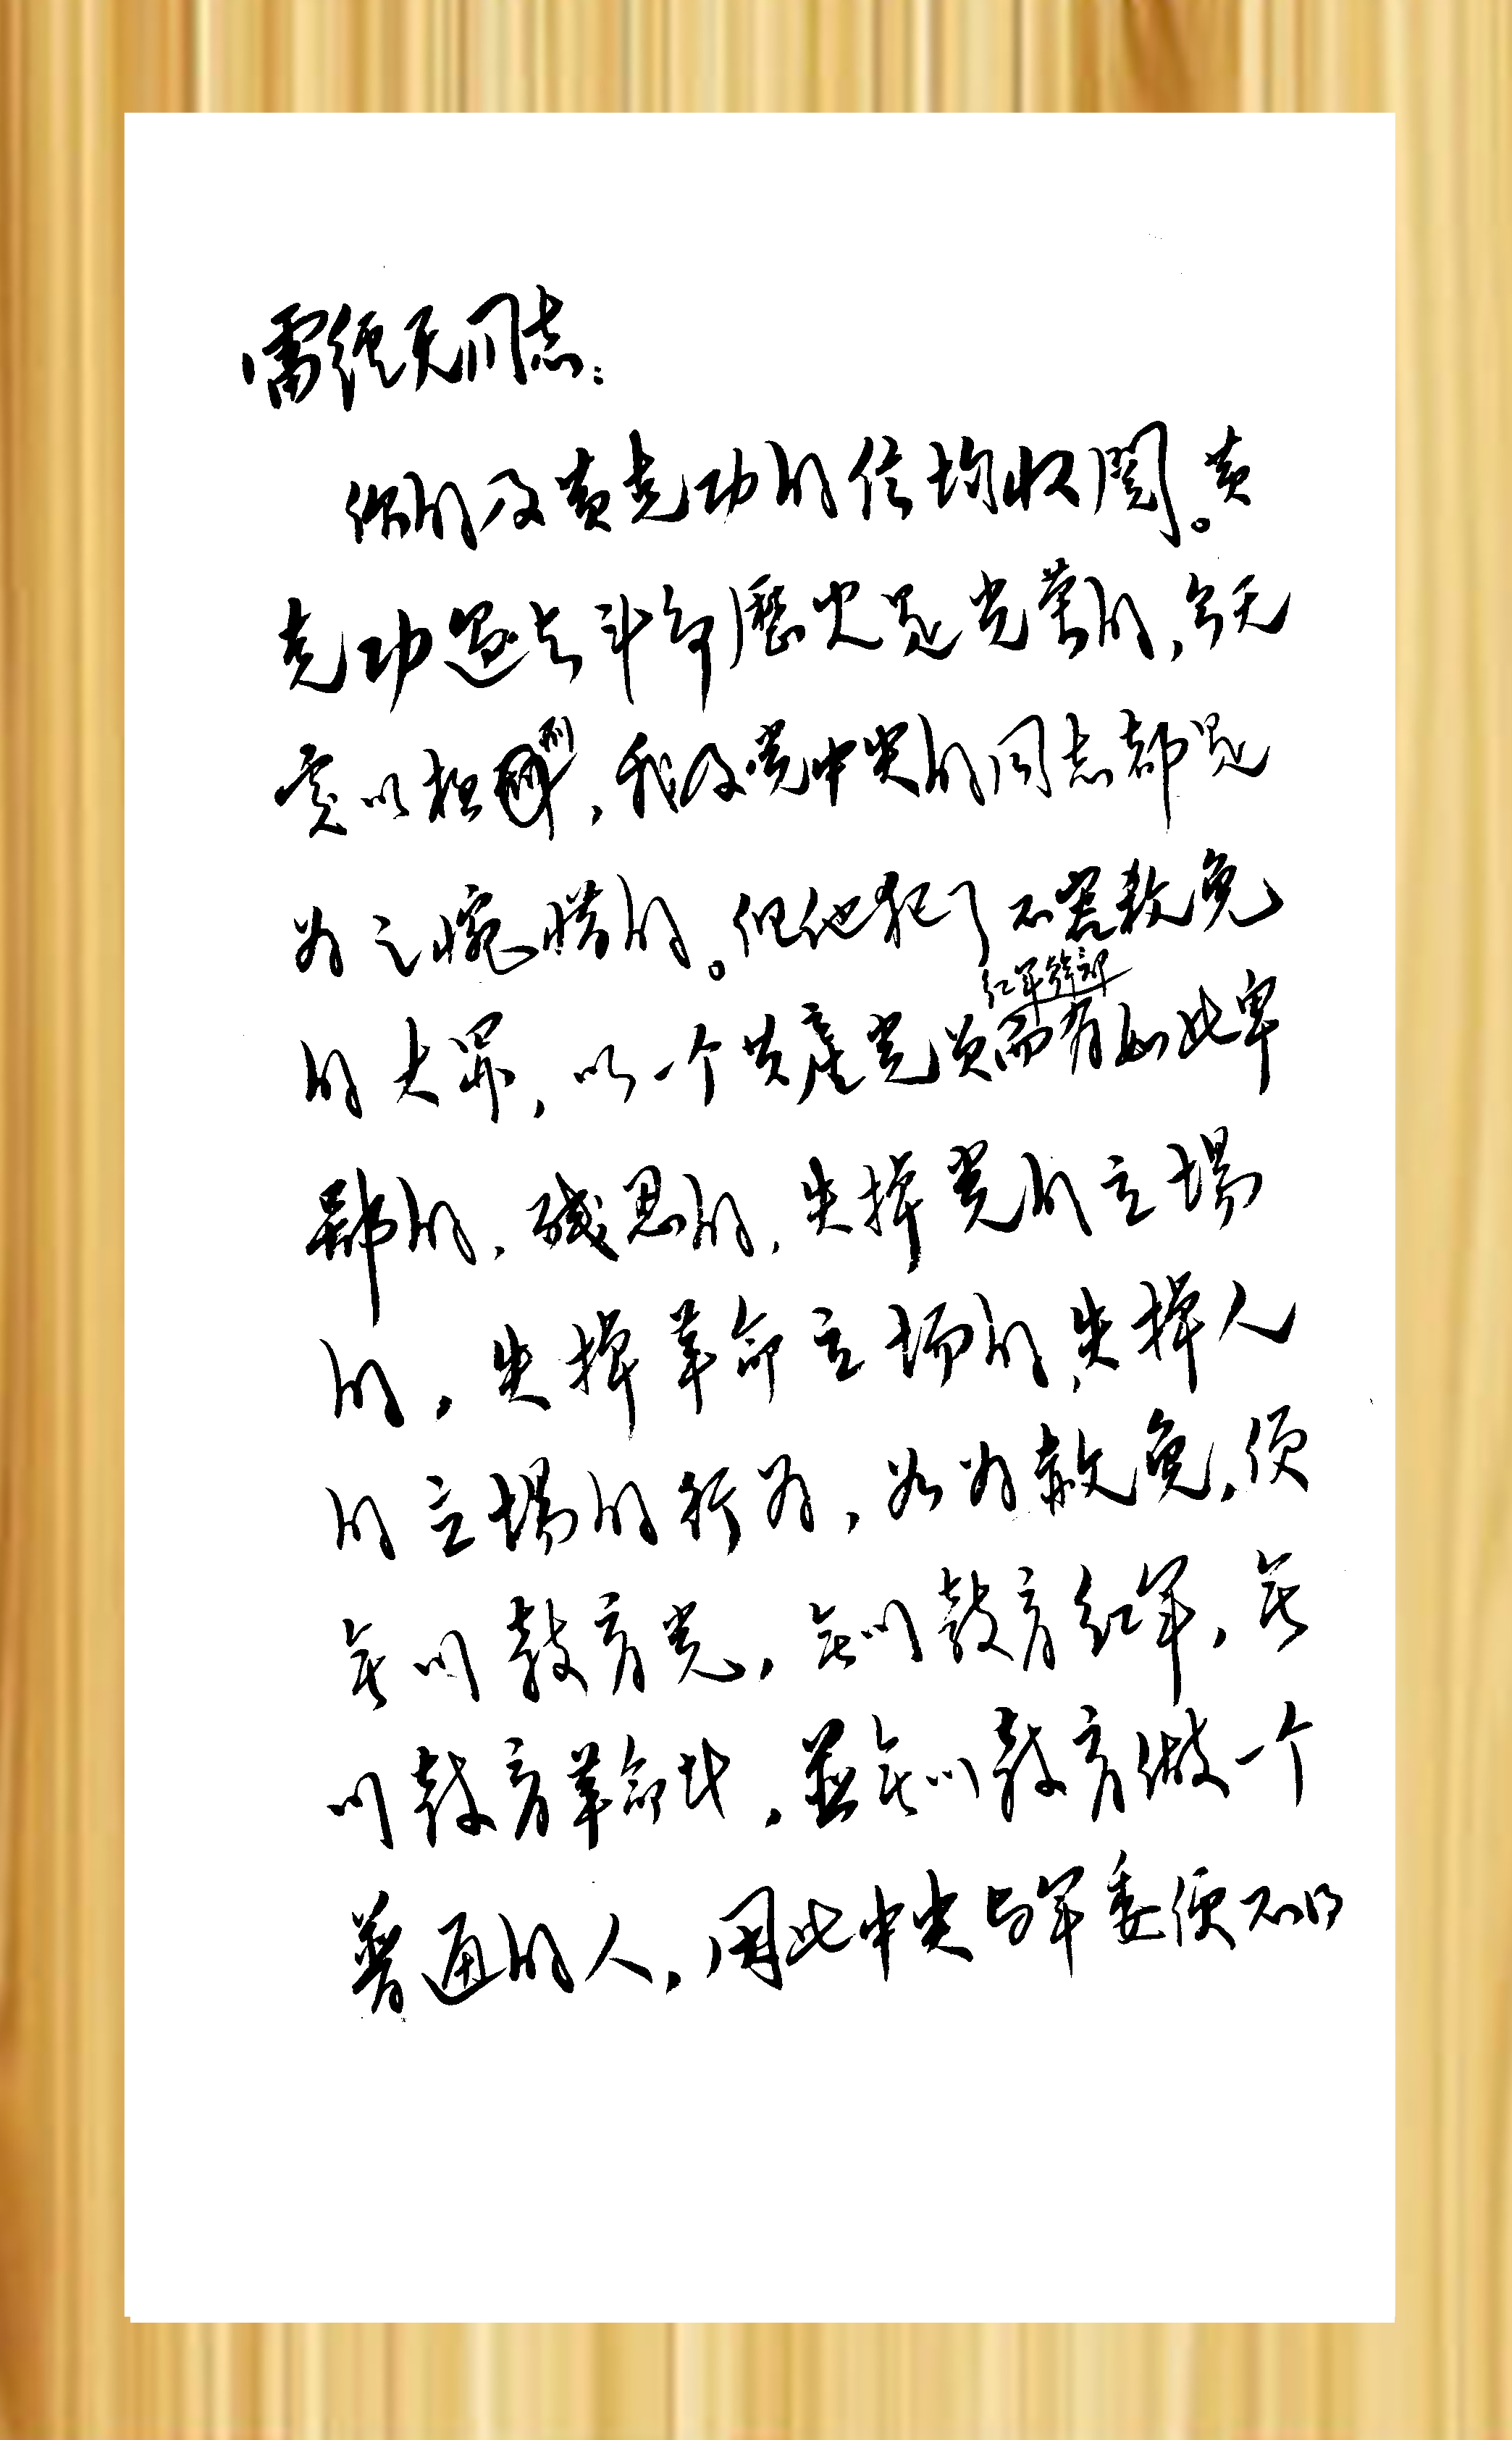 雷经天同志：
你的及黄克功的信均收阅。黄
克功过去斗争历史是光荣的，今天
处以极刑，我及党中央的同志都是
为之惋惜的。但他犯了不容赦免
的大罪，以一个共产党员红军干部而有如此卑
鄙的，残忍的，失掉党的立场
的，失掉革命立场的，失掉人
的立场的行为，如为赦免，便
无以教育党，无以教育红军，无
以教育革命者，并无以教育做一个
普通的人，因此中央与军委便不得